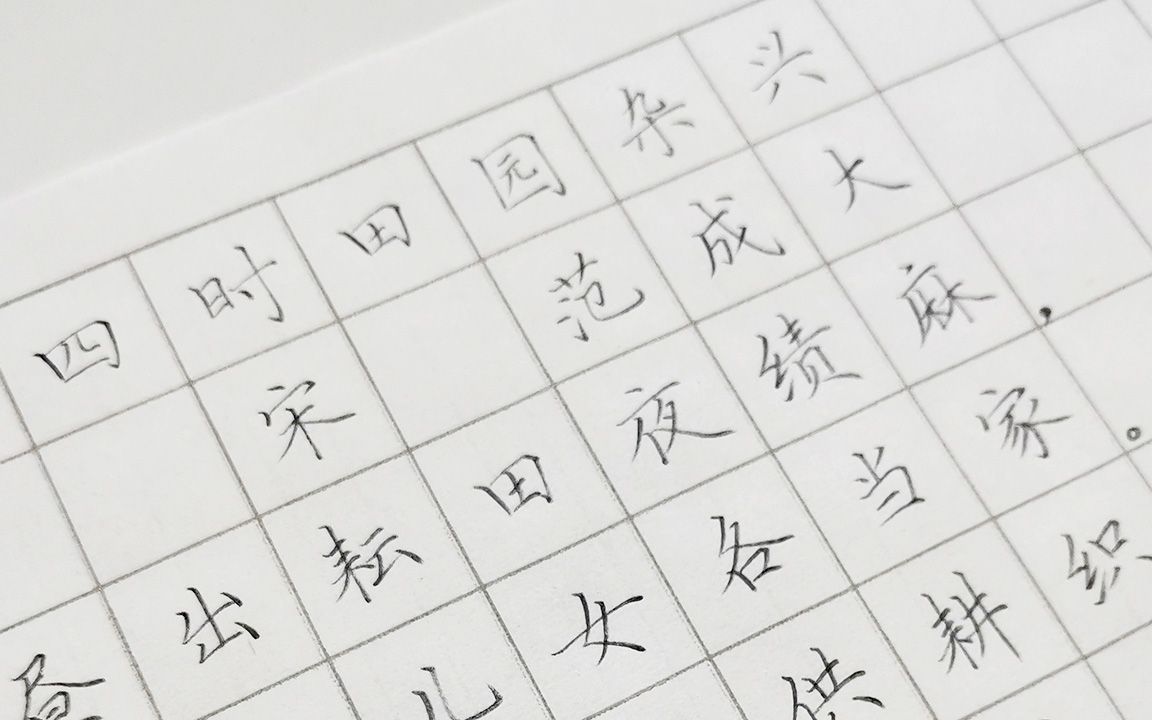 四时田园杂兴
宋 范成大
昼出耘田夜绩麻，
儿女各当家。
供耕织